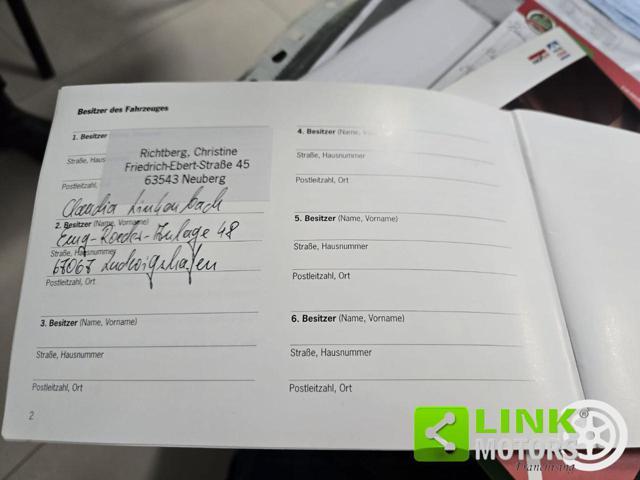 Besitzer des Fahrzeuges
1. Besitzer
Richtberg, Christine
Straße, Haus
Friedrich-Ebert-Straße 45
Postleitzahl,
63543 Neuberg
Claudia
2. Besitzer (Name, Vorname)
Anlage 48
Straße, Hausnummer
67067 Ludwigshafen
Postleitzahl, Ort
3. Besitzer (Name, Vorname)
Straße, Hausnummer
Postleitzahl, Ort
2
4. Besitzer (Name, Vorname)
Straße, Hausnummer
Postleitzahl, Ort
5. Besitzer (Name, Vorname)
Straße, Hausnummer
Postleitzahl, Ort
6. Besitzer (Name, Vorname)
Straße, Hausnummer
Postleitzahl, Ort
LINK
MOTORS
Franchising